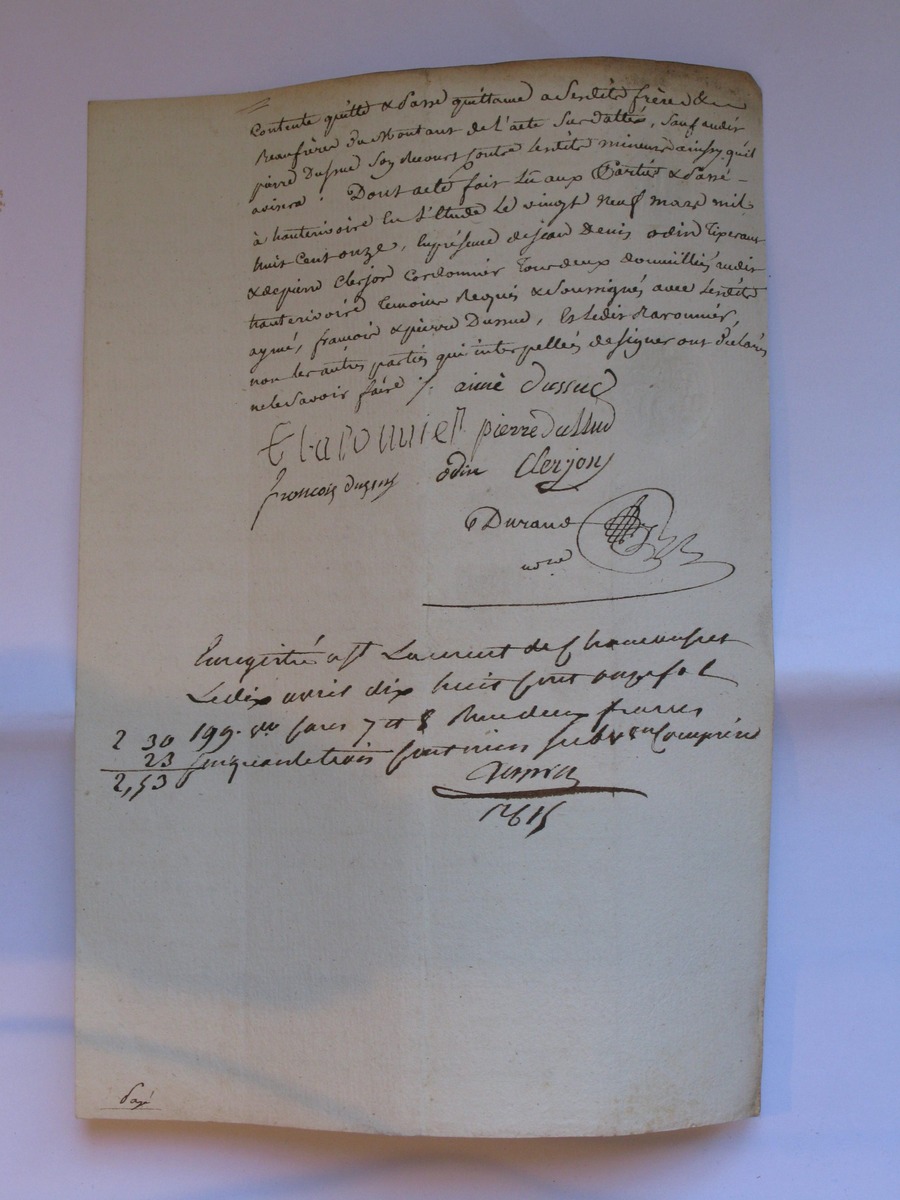 Contente quitte & passe quittance a sesdits frères &
Beaufrères du Montant de l'acte Susdatté, sauf audit
pierre Dussuc Son Recours contre lesdits mineurs ainsy qu'il
avisera ! Dont acte fait Lû aux Parties & Passé
à hauterivoire En L'Etude Le vingt neuf mars mil
huit Cent onze, En présence de jean Denis odin Tisserant
& de pierre Clerjon Cordonnier Tous deux domiciliés audit
hauterivoire Temoins Requis & Soussignés avec lesdits
aymé, francois & pierre Dussuc, Et ledit Baronnier,
non les autres parties qui interpellées de signer ont déclarés
ne le savoir faire ./. aimé dussuc
Baronnier pierre dussuc
francois dussuc odin Clerjon
Durand
nore
Enregistré a St Laurent de Chamousset
Le dix avril dix huit cent onze fol
2 30 199. vo cases 7 et 8 Reçu deux francs
23 cinquante trois centimes subvon Comprise
2,53
Payé